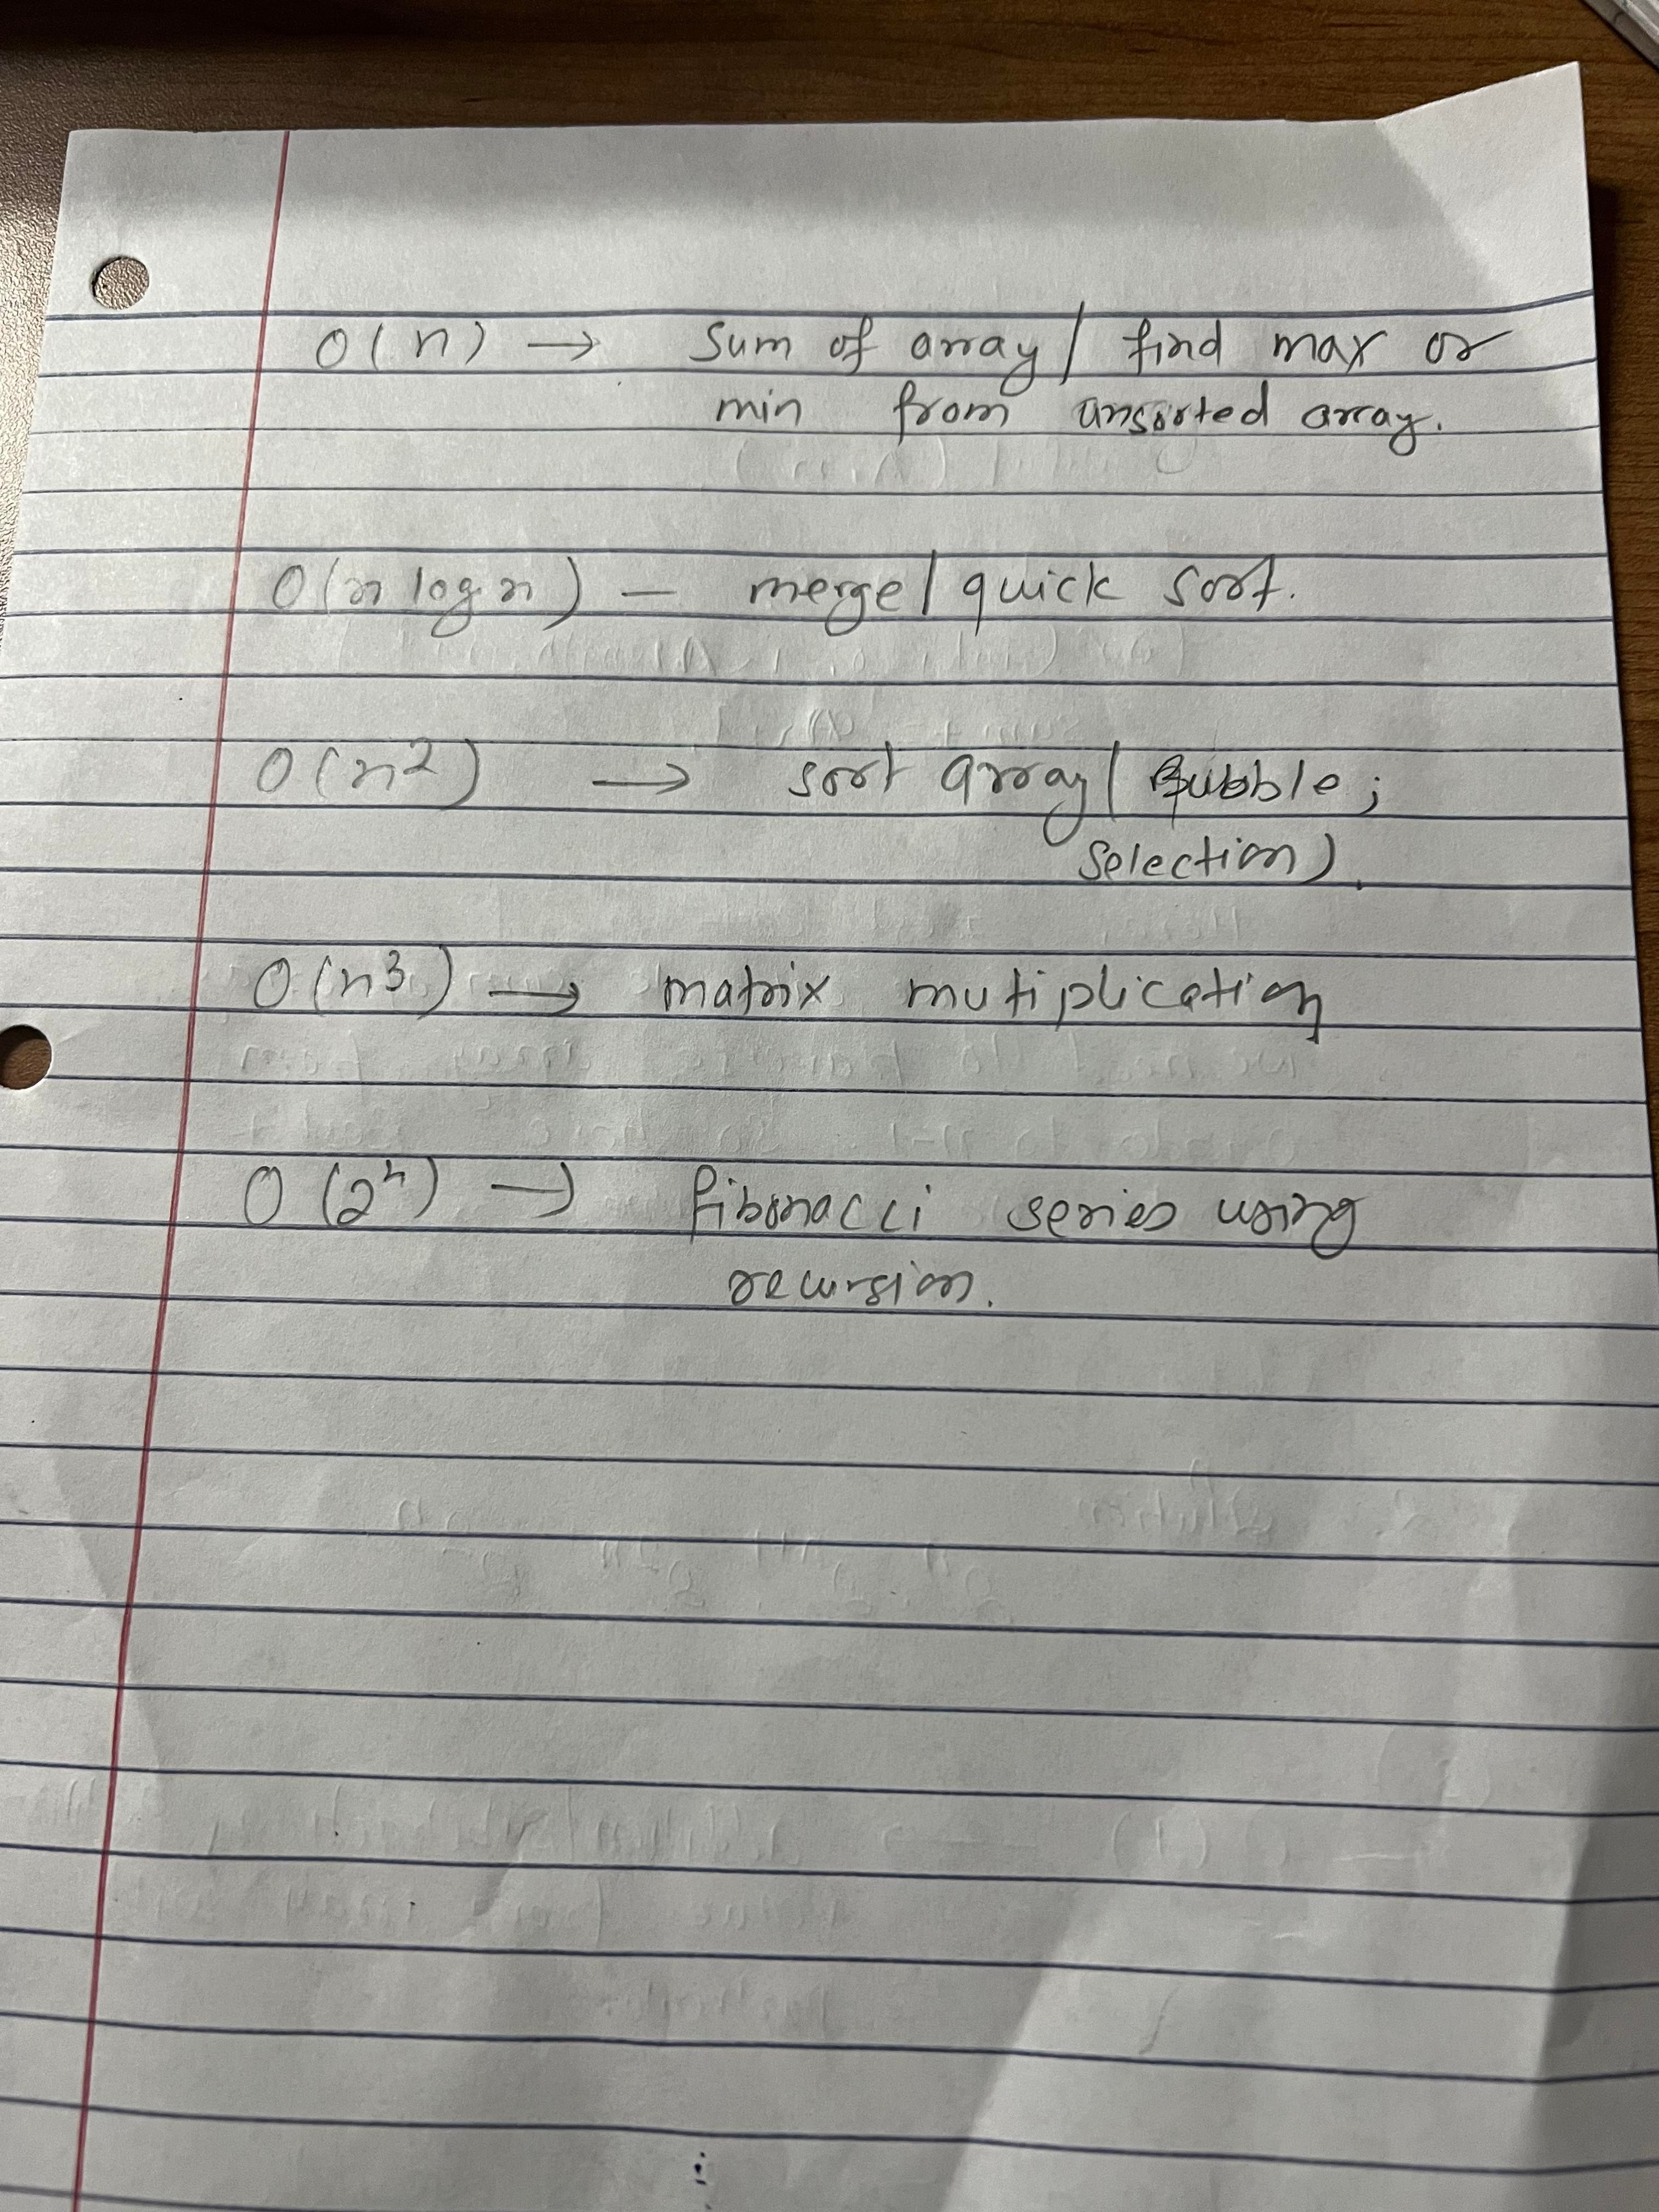 O(n) → Sum of array / find max or
min from unsorted array.
O(n log n) — merge / quick sort.
O(n²) → sort array ( Bubble ;
Selection).
O(n³) → matrix mutiplication
O(2ⁿ) → fibonacci series using
recursion.